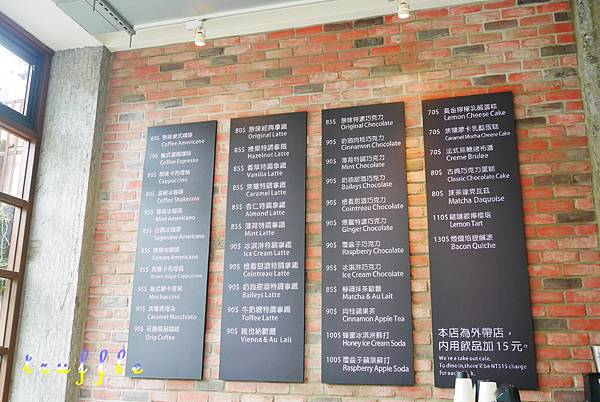 60$ 原味美式咖啡
Coffee Americano
70$ 義式濃縮咖啡
Coffee Espresso
80$ 原味卡布奇諾
Cappuccino
Coffee Shakerato
85$
Mint Americano
85$
Sugarcane Americano
Lemon Americano
95$ 黑糖卡布奇諾
Brown Sugar Cappuccino
95$ 義式摩卡奇諾
Mochaccino
95$ 焦糖瑪奇朵
Caramel Macchiato
90$ 莊園極品咖啡
Drip Coffee
80$ 原味經典拿鐵
Original Latte
85$ 榛果特調拿鐵
Hazelnut Latte
85$ 香草特調拿鐵
Vanilla Latte
85$ 焦糖特調拿鐵
Caramel Latte
85$ 杏仁特調拿鐵
Almond Latte
85$ 薄荷特調拿鐵
Mint Latte
90$ 冰淇淋特調拿鐵
Ice Cream Latte
90$ 橙香甜酒特調拿鐵
Cointreau Latte
90$ 奶油甜酒特調拿鐵
Baileys Latte
90$ 牛奶糖特調拿鐵
Toffee Latte
90$ 維也納歐蕾
Vienna & Au Lait
85$ 原味特濃巧克力
Original Chocolate
90$ 奶油肉桂巧克力
Cinnamon Chocolate
90$ 薄荷特調巧克力
Mint Chocolate
90$ 奶油甜酒巧克力
Baileys Chocolate
90$ 橙香甜酒巧克力
Cointreau Chocolate
90$ 薑蜜特濃巧克力
Ginger Chocolate
90$ 覆盆子巧克力
Raspberry Chocolate
90$ 冰淇淋巧克力
Ice Cream Chocolate
85$ 靜岡抹茶歐蕾
Matcha & Au Lait
90$ 肉桂蘋果茶
Cinnamon Apple Tea
100$ 蜂蜜冰淇淋蘇打
Honey Ice Cream Soda
100$ 覆盆子蘋果蘇打
Raspberry Apple Soda
70$ 黃金檸檬乳酪蛋糕
Lemon Cheese Cake
70$ 焦糖摩卡乳酪蛋糕
Caramel Mocha Cheese Cake
70$ 法式焦糖烤布蕾
Creme Brulee
80$ 古典巧克力蛋糕
Classic Chocolate Cake
80$ 抹茶達克瓦茲
Matcha Daquoise
110$ 檸檬塔
Lemon Tart
130$ 煙燻培根鹹派
Bacon Quiche
本店為外帶店，
內用飲品加 15 元。
We're a take out cafe.
To dine in, there'll be NT$15 charge
for each